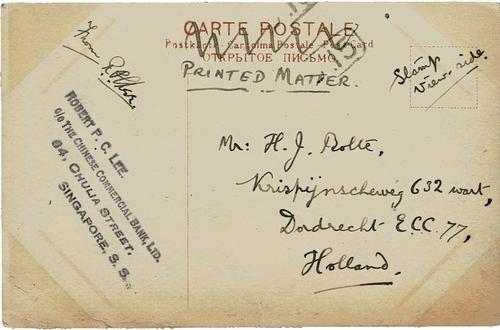 CARTE POSTALE
Postkarte Cartolina Postale Post Card
ОТКРЫТОЕ ПИСЬМО
PRINTED MATTER.
Stamp
view side.
From
ROBERT P. C. LEE.
c/o THE CHINESE COMMERCIAL BANK, LTD.
64, CHULIA STREET,
SINGAPORE, S. S.
Mr: H. J. Bolte,
Krispijnscheweg 632 wart,
Dordrecht E.C.C. 77,
Holland.